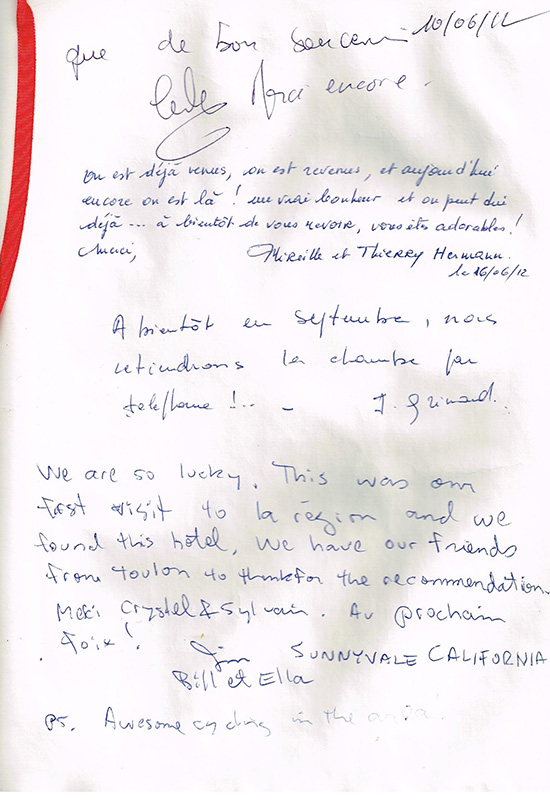 que de bon souvenir 10/06/12
Merci encore.
On est déjà venus, on est revenus, et aujourd'hui
encore on est là ! un vrai bonheur et on peut dire
déjà ... à bientôt de vous revoir, vous êtes adorables !
Merci, Mireille et Thierry Hermann.
le 16/06/12
A bientôt en septembre, nous
retiendrons la chambre par
téléphone !.. - J. Grimand.
We are so lucky. This was our
first visit to la région and we
found this hotel. We have our friends
from Toulon to thank for the recommendation.
Merci Crystel & Sylvain. Au prochain
foix!
Jim SUNNYVALE CALIFORNIA
Bill et Ella
PS. Awesome cycling in the area!